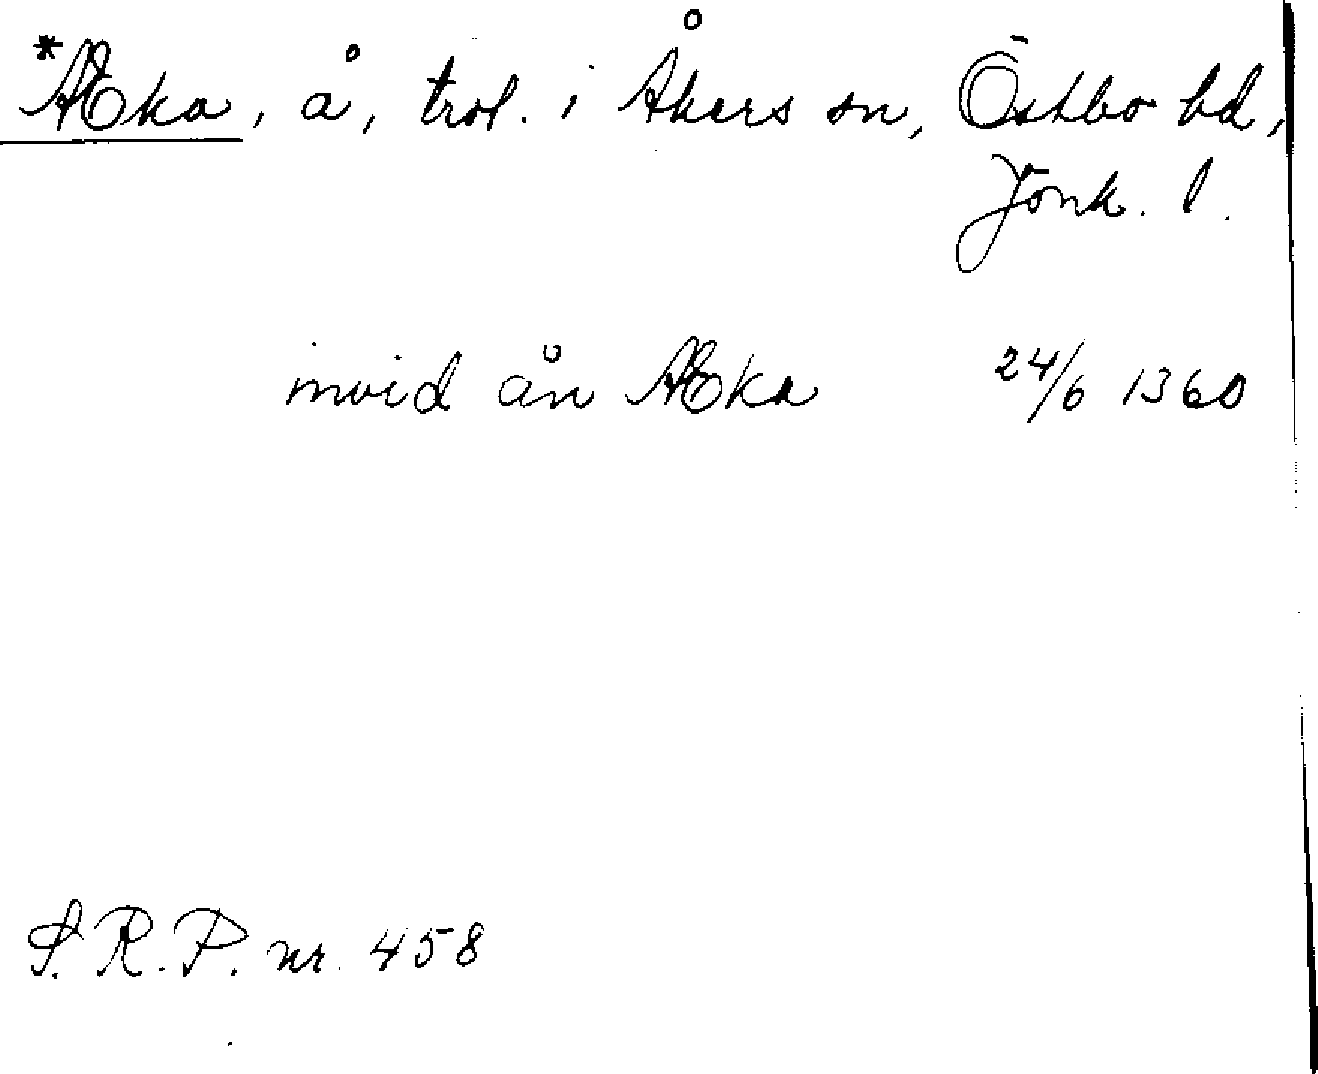 *Æka, å, trol. i Åkers sn, Östbo hd,
Jönk. l.
invid ån Æka 24/6 1360
S.R.P. nr. 458